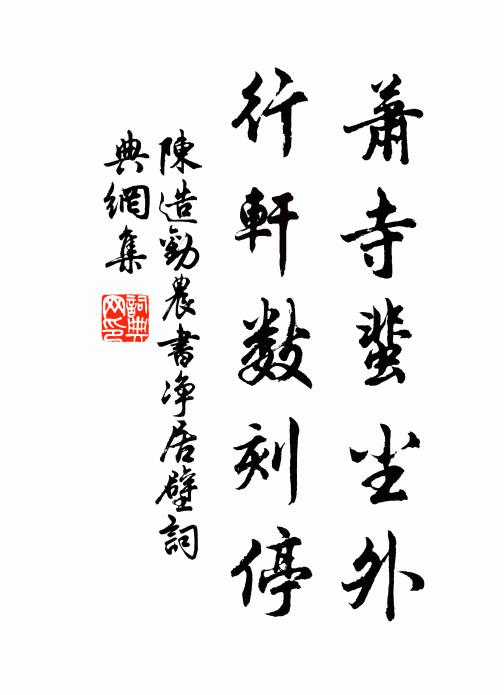 蕭寺蜚尘外
行軒数刻停
陳造勸農書净居壁詞
典網集
詞典网印